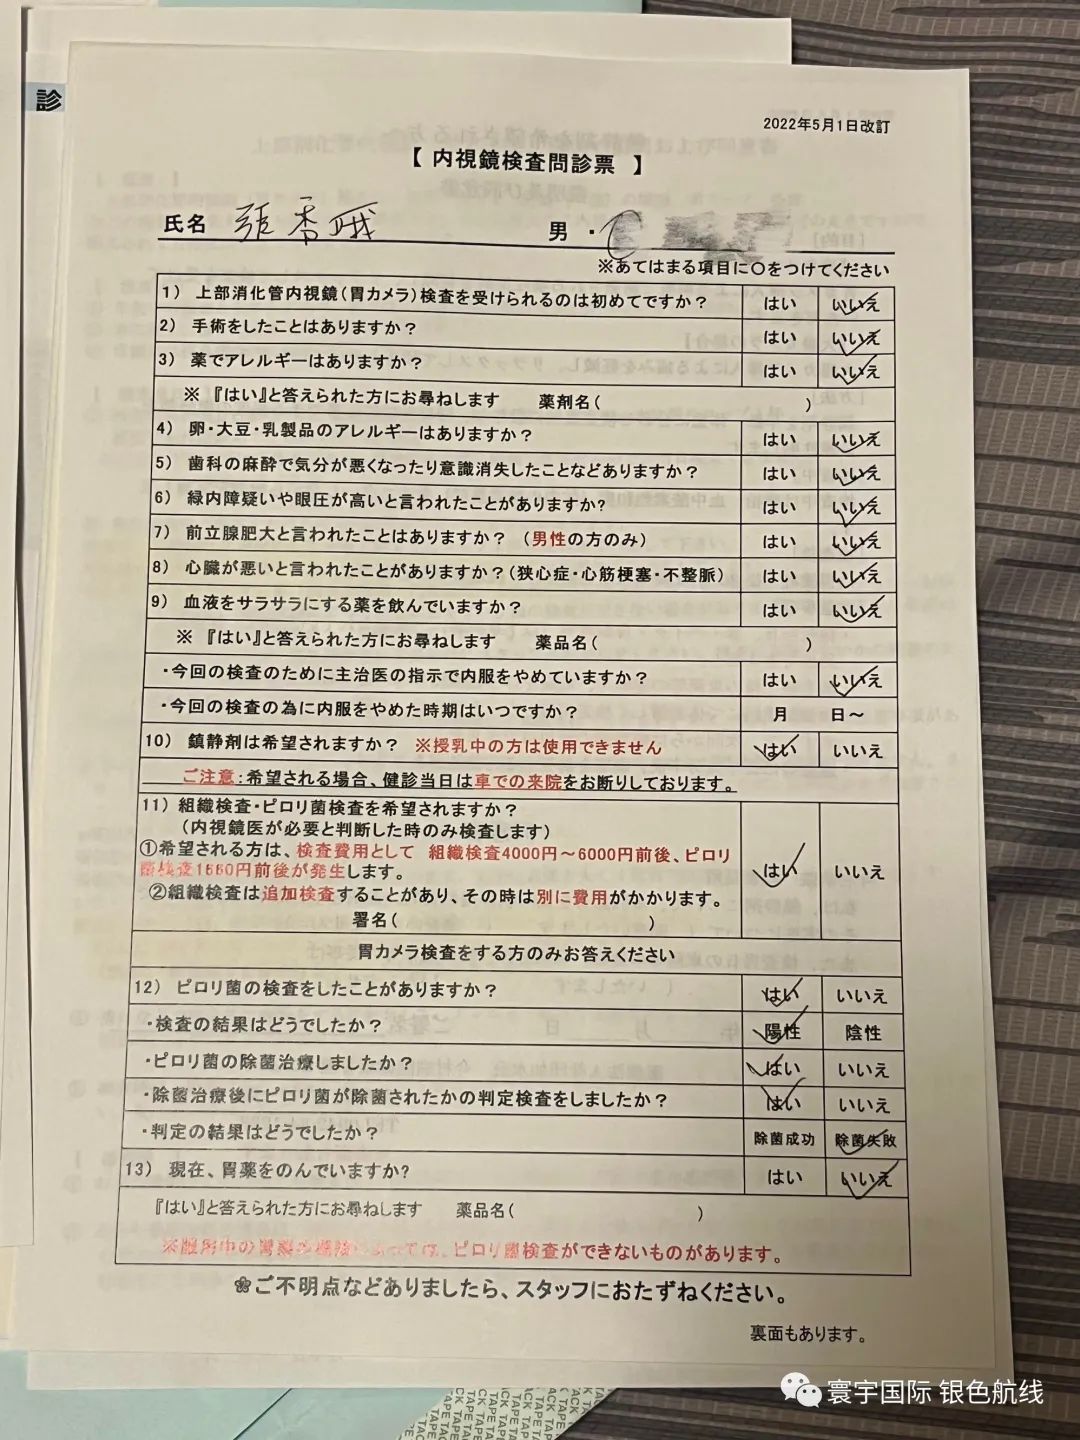 診
2022年5月1日改訂
【 内視鏡検査問診票 】
氏名 張香哦 男 ・
※あてはまる項目に〇をつけてください
1） 上部消化管内視鏡（胃カメラ）検査を受けられるのは初めてですか？ はい いいえ
2） 手術をしたことはありますか？ はい いいえ
3） 薬でアレルギーはありますか？ はい いいえ
※ 『はい』と答えられた方にお尋ねします 薬剤名（ ）
4） 卵・大豆・乳製品のアレルギーはありますか？ はい いいえ
5） 歯科の麻酔で気分が悪くなったり意識消失したことなどありますか？ はい いいえ
6） 緑内障疑いや眼圧が高いと言われたことがありますか？ はい いいえ
7） 前立腺肥大と言われたことはありますか？ （男性の方のみ） はい いいえ
8） 心臓が悪いと言われたことがありますか？（狭心症・心筋梗塞・不整脈） はい いいえ
9） 血液をサラサラにする薬を飲んでいますか？ はい いいえ
※ 『はい』と答えられた方にお尋ねします 薬品名（ ）
・今回の検査のために主治医の指示で内服をやめていますか？ はい いいえ
・今回の検査の為に内服をやめた時期はいつですか？ 月 日～
10） 鎮静剤は希望されますか？ ※授乳中の方は使用できません はい いいえ
ご注意：希望される場合、健診当日は車での来院をお断りしております。
11） 組織検査・ピロリ菌検査を希望されますか？
（内視鏡医が必要と判断した時のみ検査します）
①希望される方は、検査費用として 組織検査4000円～6000円前後、ピロリ
菌検査1660円前後が発生します。 はい いいえ
②組織検査は追加検査することがあり、その時は別に費用がかかります。
署名（ ）
胃カメラ検査をする方のみお答えください
12） ピロリ菌の検査をしたことがありますか？ はい いいえ
・検査の結果はどうでしたか？ 陽性 陰性
・ピロリ菌の除菌治療しましたか？ はい いいえ
・除菌治療後にピロリ菌が除菌されたかの判定検査をしましたか？ はい いいえ
・判定の結果はどうでしたか？ 除菌成功 除菌失敗
13） 現在、胃薬をのんでいますか？ はい いいえ
『はい』と答えられた方にお尋ねします 薬品名（ ）
※服用中の胃薬の種類によっては、ピロリ菌検査ができないものがあります。
❀ご不明点などありましたら、スタッフにおたずねください。
裏面もあります。
寰宇国际 银色航线